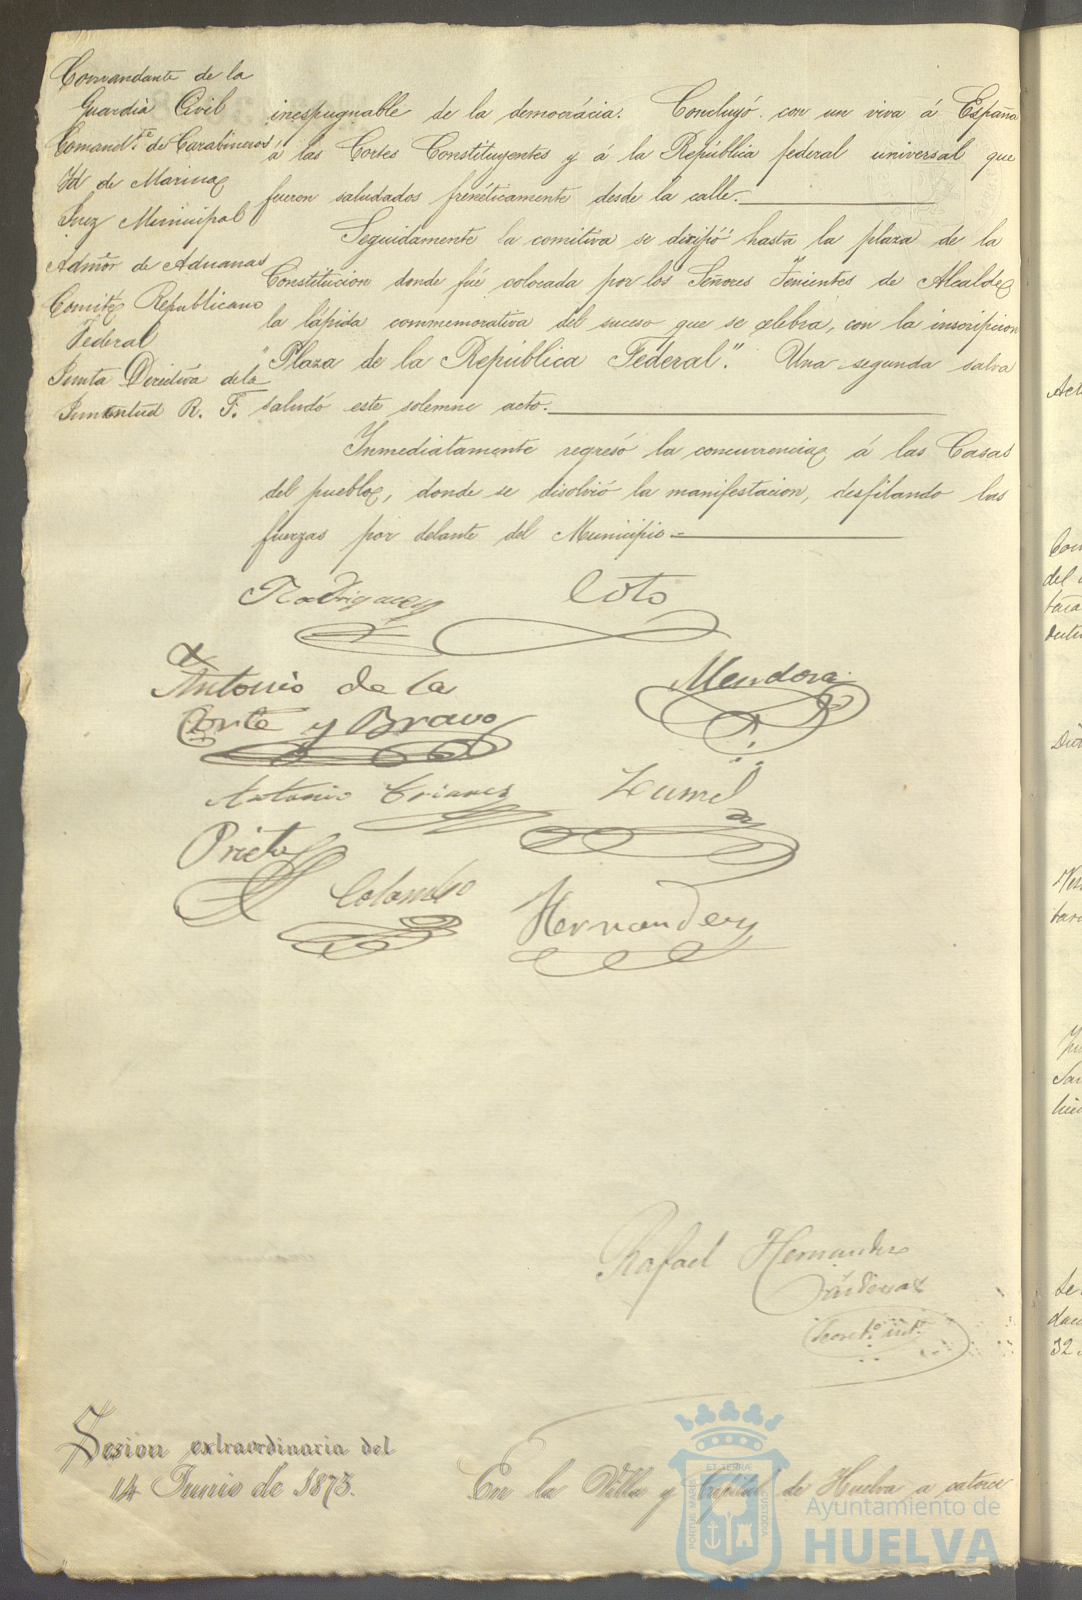 Comandante de la
Guardia Civil
Comandte. de Carabineros
Id de Marina
Juez Municipal
Admor de Aduanas
Comité Republicano
Federal
Junta Directiva de la
Juventud R. F.
inespugnable de la democrácia. Concluyó con un viva á España
á las Cortes Constituyentes y á la República federal universal que
fueron saludados frenéticamente desde la calle.
Seguidamente la comitiva se dirijió hasta la plaza de la
Constitucion donde fué colocada por los Señores Tenientes de Alcalde
la lápida commemorativa del suceso que se celebra, con la inscripcion
"Plaza de la República Federal". Una segunda salva
saludó este solemne acto.
Inmediatamente regresó la concurrencia á las Casas
del pueblo, donde se disolvió la manifestacion, desfilando las
fuerzas por delante del Municipio.=
Rodriguez Coto
Antonio de la
Corte y Bravo
Mendoza
Antonio Trianes
Prieto
Colombo
Hernandez
Rafael Hernandez
Cárdenas
Secreto. intо.
Sesion extraordinaria del
14 Junio de 1873.
En la Villa y Capital de Huelva a catorce
PORTUS MARIS ET TERRÆ CUSTODIA
Ayuntamiento de
HUELVA